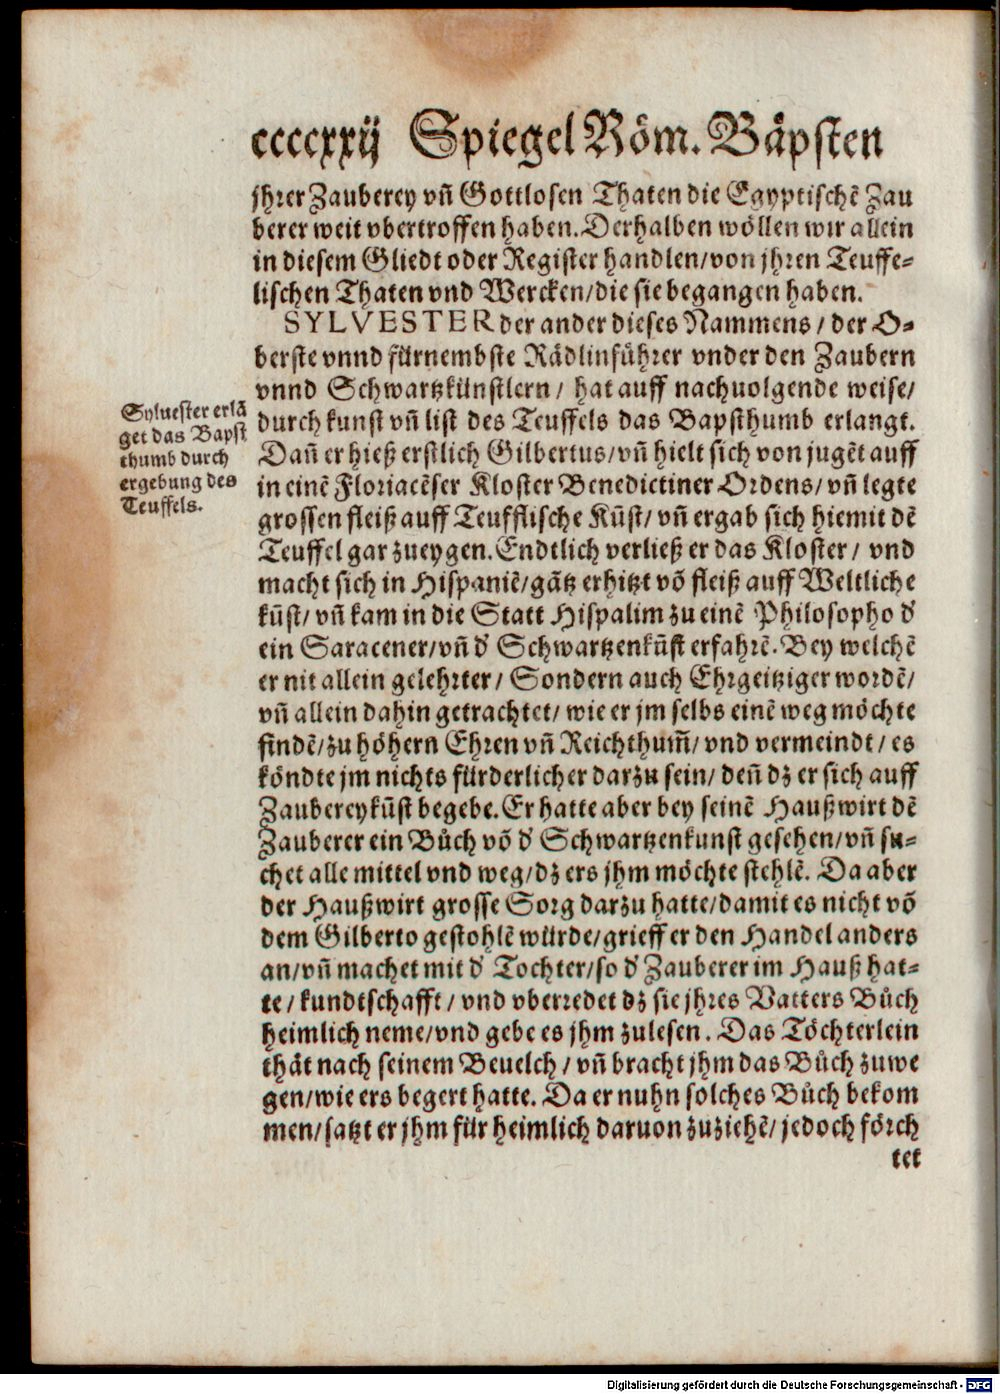 ccccxxij Spiegel Röm. Bäpsten
jhrer Zauberey vñ Gottlosen Thaten die Egyptischẽ Zau
berer weit vbertroffen haben. Derhalben wöllen wir allein
in diesem Gliedt oder Register handlen/ von jhren Teuffe-
lischen Thaten vnd Wercken/ die sie begangen haben.
SYLVESTER der ander dieses Nammens/ der O-
berste vnnd fürnembste Rädlinführer vnder den Zaubern
vnnd Schwartzkünstlern/ hat auff nachuolgende weise/
durch kunst vñ list des Teuffels das Bapsthumb erlangt.
Dañ er hieß erstlich Gilbertus/ vñ hielt sich von jugẽt auff
in einẽ Floriacẽser Kloster Benedictiner Ordens/ vñ legte
grossen fleiß auff Teufflische Kũst/ vñ ergab sich hiemit dẽ
Teuffel gar zueygen. Endtlich verließ er das Kloster/ vnd
macht sich in Hispaniẽ/ gãtz erhitzt võ fleiß auff Weltliche
kũst/ vñ kam in die Statt Hispalim zu einẽ Philosopho d'
ein Saracener/ vñ d' Schwartzenkũst erfahrẽ. Bey welchẽ
er nit allein gelehrter/ Sondern auch Ehrgeitziger wordẽ/
vñ allein dahin getrachtet/ wie er jm selbs einẽ weg möchte
findẽ/ zu höhern Ehren vñ Reichthum̃/ vnd vermeindt/ es
köndte jm nichts fürderlicher darzu sein/ deñ dz er sich auff
Zaubereykũst begebe. Er hatte aber bey seinẽ Haußwirt dẽ
Zauberer ein Bůch võ d' Schwartzenkunst gesehen/ vñ su-
chet alle mittel vnd weg/ dz ers jhm möchte stehlẽ. Da aber
der Haußwirt grosse Sorg darzu hatte/ damit es nicht võ
dem Gilberto gestohlẽ würde/ grieff er den Handel anders
an/ vñ machet mit d' Tochter/ so d' Zauberer im Hauß hat-
te/ kundtschafft/ vnd vberredet dz sie jhres Vatters Bůch
heimlich neme/ vnd gebe es jhm zulesen. Das Töchterlein
thät nach seinem Beuelch/ vñ bracht jhm das Bůch zuwe
gen/ wie ers begert hatte. Da er nuhn solches Bůch bekom
men/ satzt er jhm für heimlich daruon zuziehẽ/ jedoch förch
tet
Syluester erlã
get das Bapst
thumb durch
ergebung des
Teuffels.
Digitalisierung gefördert durch die Deutsche Forschungsgemeinschaft - DFG